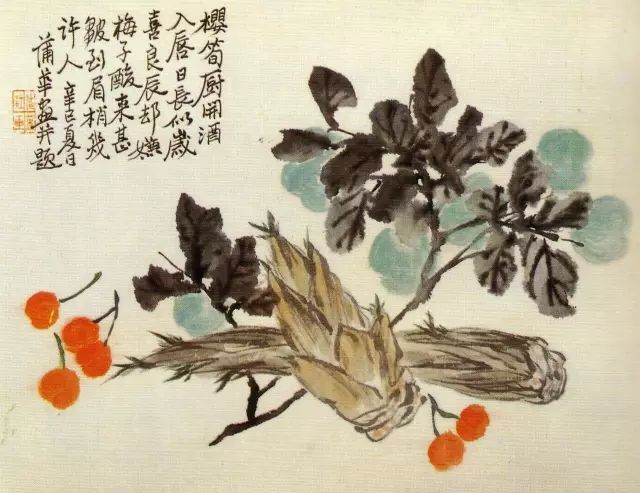 櫻筍厨開酒
入唇日長似歲
喜良辰却嫌
梅子酸來甚
皺到眉梢幾
許人 辛巳夏日
蒲華畫并題